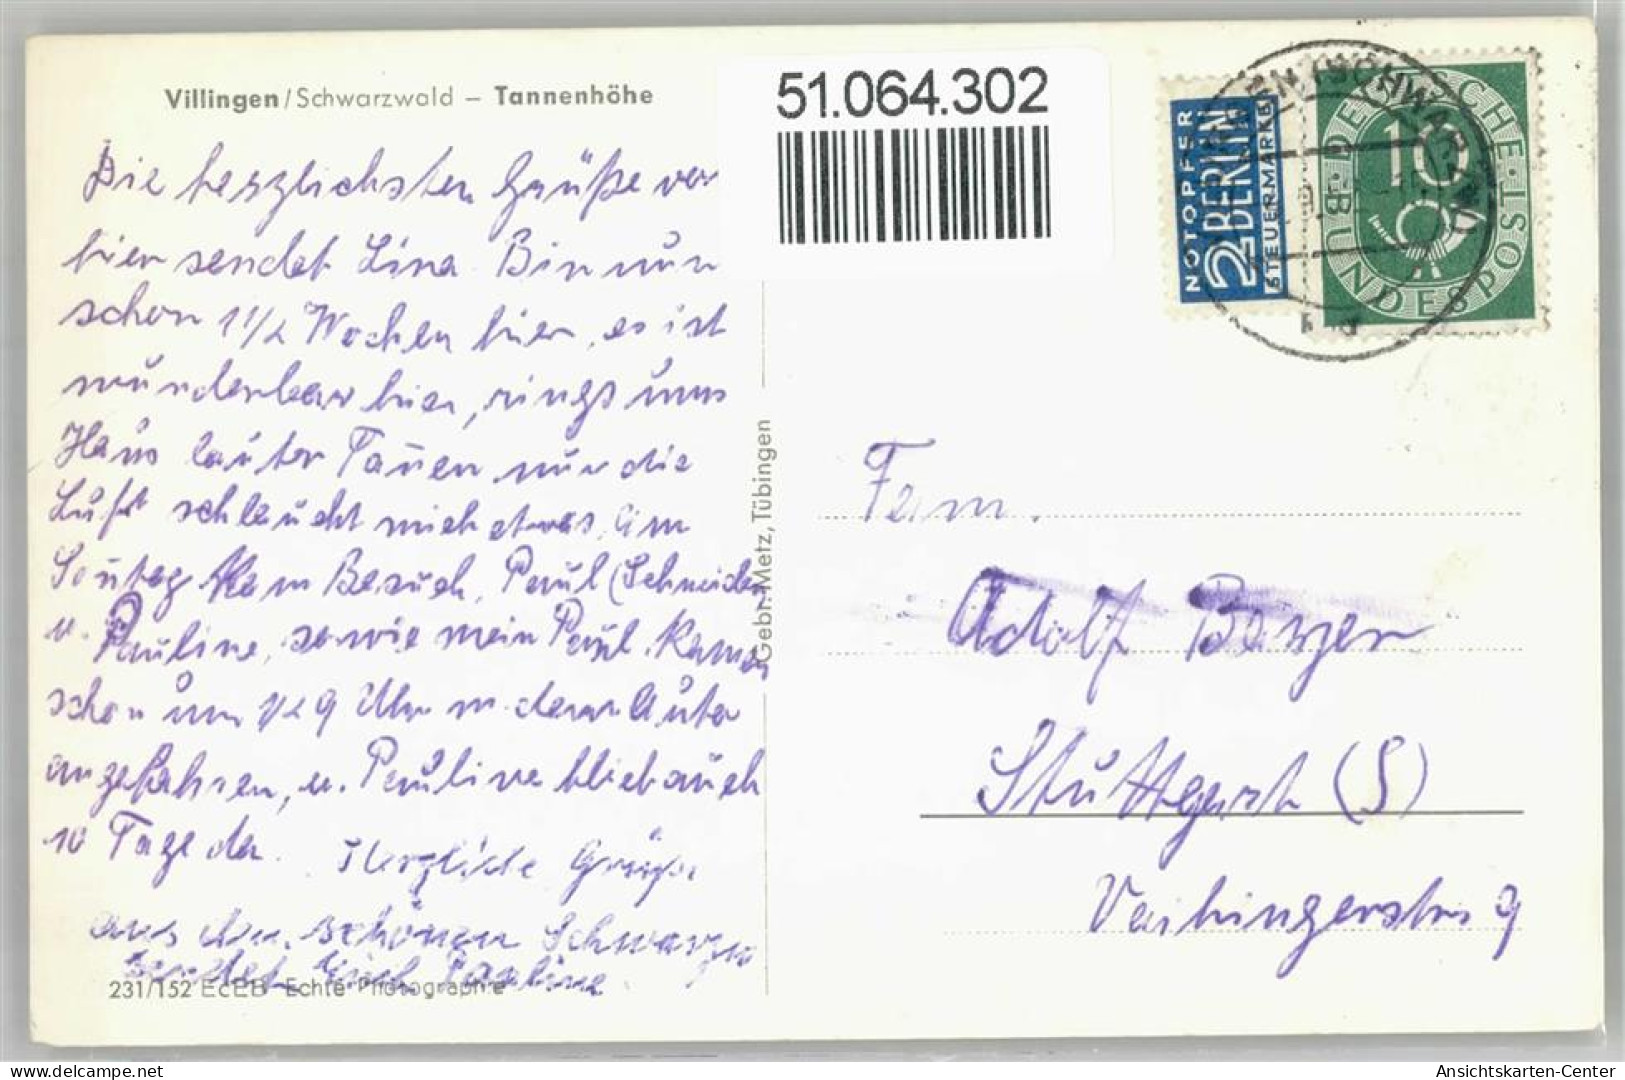 Villingen/Schwarzwald – Tannenhöhe
51.064.302
NOTOPFER
2 BERLIN
STEUERMARKE
DEUTSCHE BUNDESPOST
10
Die herzlichsten Grüße von
hier sendet Lina. Bin nun
schon 1 1/2 Wochen hier, es ist
wunderbar hier, rings ums
Haus lauter Tannen nur die
Luft schlaucht mich etwas. Am
Sonntag kam Besuch, Paul (Schneider
u. Pauline, sowie mein Paul. Kamen
schon um 1/2 9 Uhr m. dem Auto
angefahren, u. Pauline blieb auch
10 Tage da. Herzliche Grüße
aus dem schönen Schwarzw
sendet Euch Pauline
231/152 EcEB Echte Photographie
Gebr. Metz, Tübingen
Fam.
Adolf
Stuttgart (S)
Vaihingerstr. 9
Ansichtskarten-Center
delcampe.net